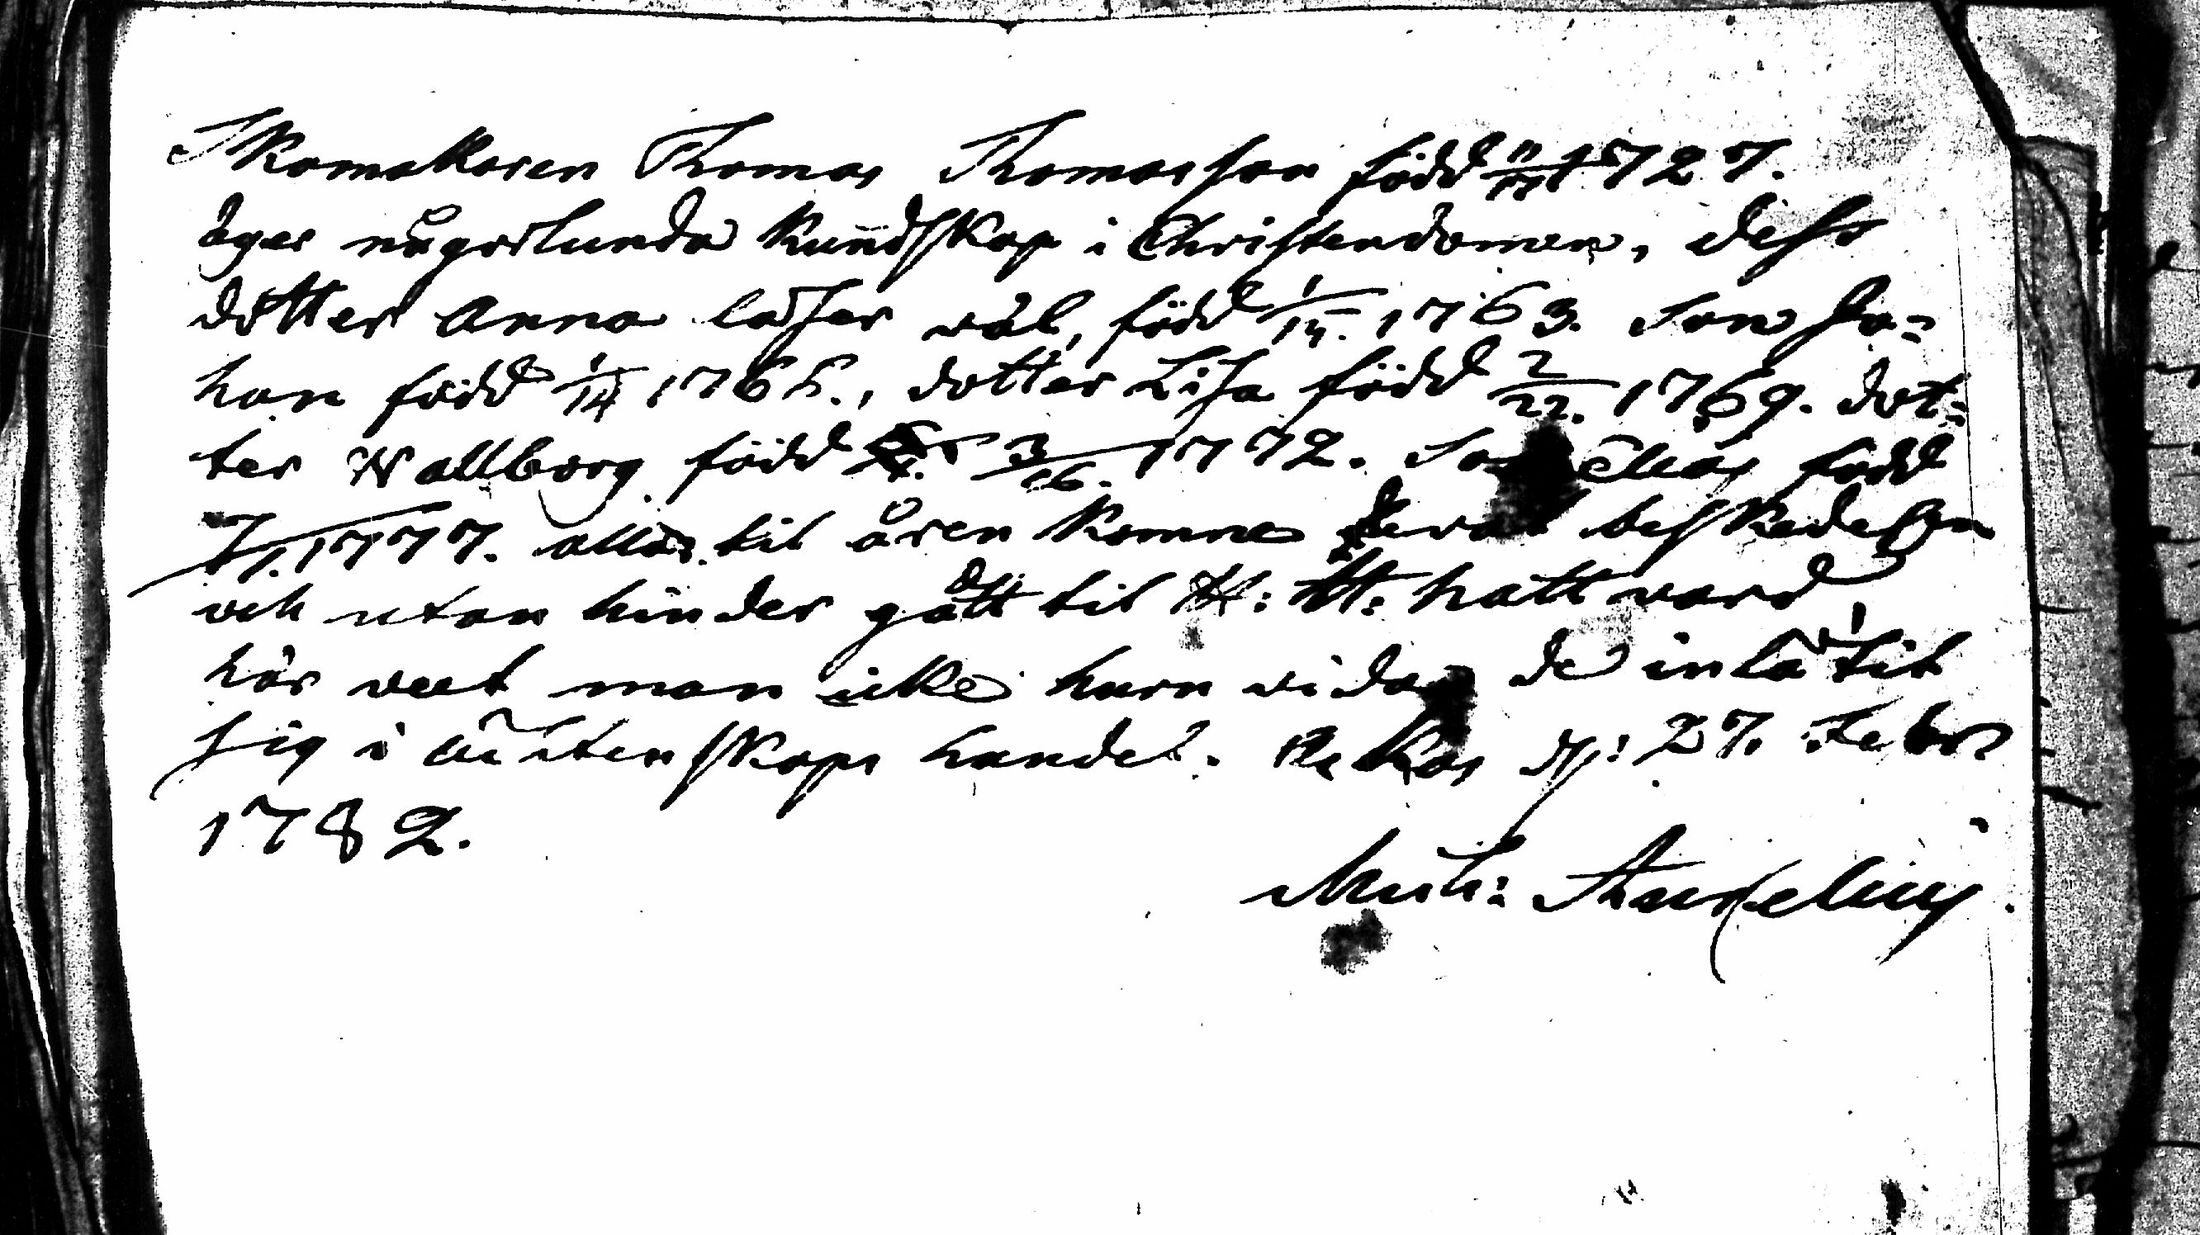 Skomakaren Thomas Thomasson född 1727.
äger någorlunda kundskap i Christendomen, dess
dotter Anna läser väl, född 1/15. 1763. Son Jo=
han född 1/14 1766., dotter Lisa född 2/22. 1769. dot=
ter Wallborg född 3/16. 1772. Son Elias född
7/7. 1777. alla til åren komne beskedeligen
och utan hinder gått til H: H: hattward
här veet man icke huru vida de inlåtit
sig i ächtenskaps handel. Rekas d: 27. Febr
1782.